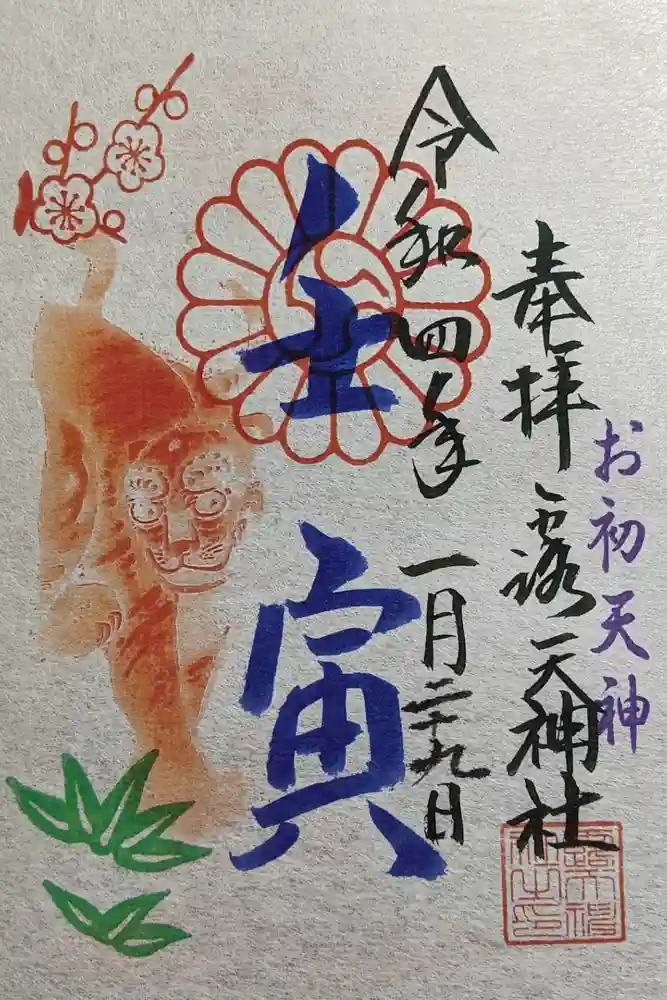 お初天神
奉拝 露天神社
令和四年 一月二十九日
壬寅